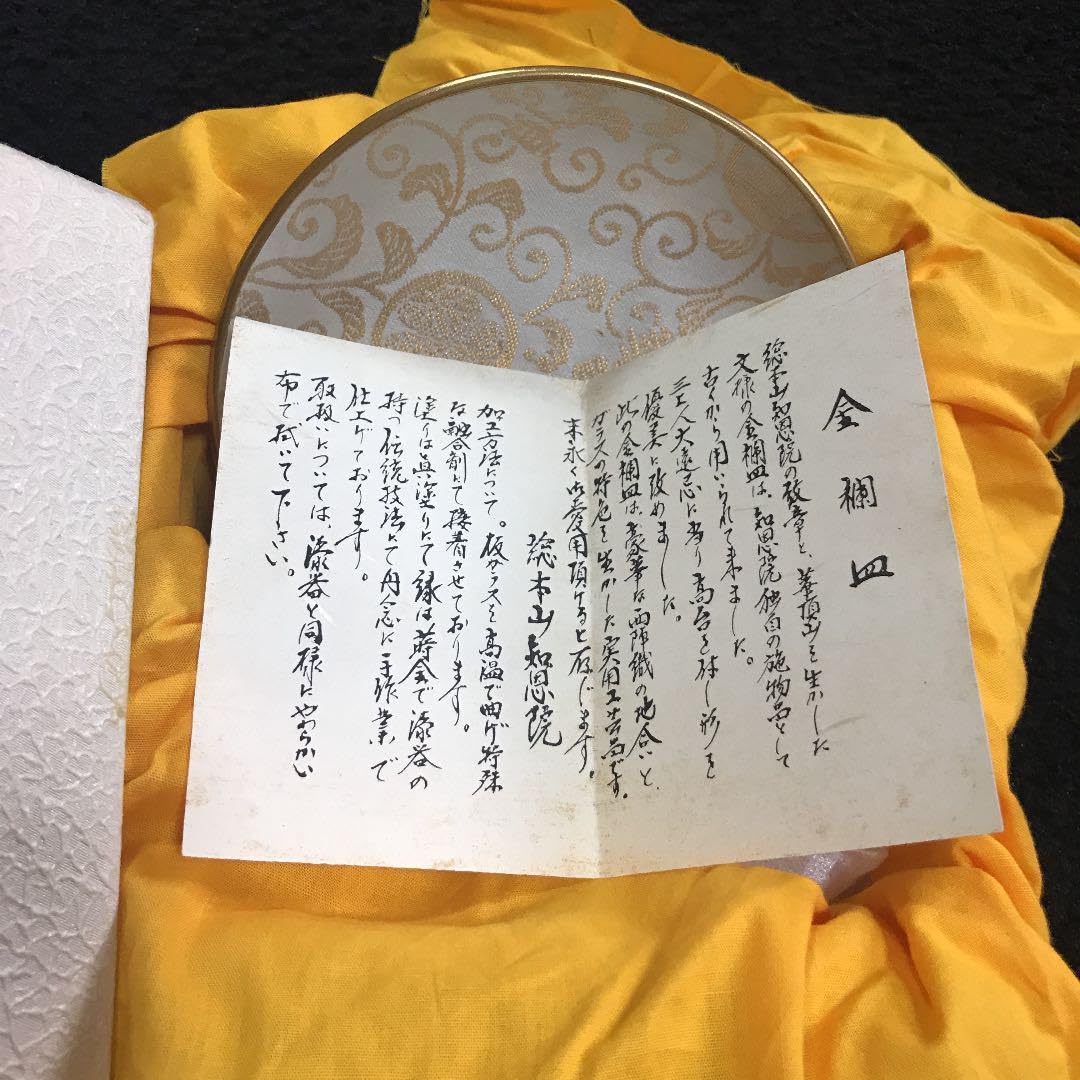 金襴皿
総本山知恩院の紋章と、華頂山を生かした
文様の金襴皿は、知恩院独自の施物品として
古くから用いられて来ました。
大遠忌に当り高台を付し形を
優美に改めました。
此の金襴皿は、豪華な西陣織の地合いと、
ガラスの特色を生かした実用工芸品です。
末永く御愛用頂けると存じます。
総本山知恩院
加工方法について。板ガラスを高温で曲げ特殊
な融合剤にて接着させております。
塗りは真塗りにて縁は蒔金で漆器の
持つ伝統技法にて丹念に手作業で
仕上げております。
取扱いについては、漆器と同様にやわらかい
布で拭いて下さい。